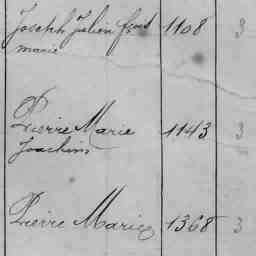 Joseph Julien 1108 3
marie
Pierre Marie 1143 3
Joachim
Pierre Marie 1368 3